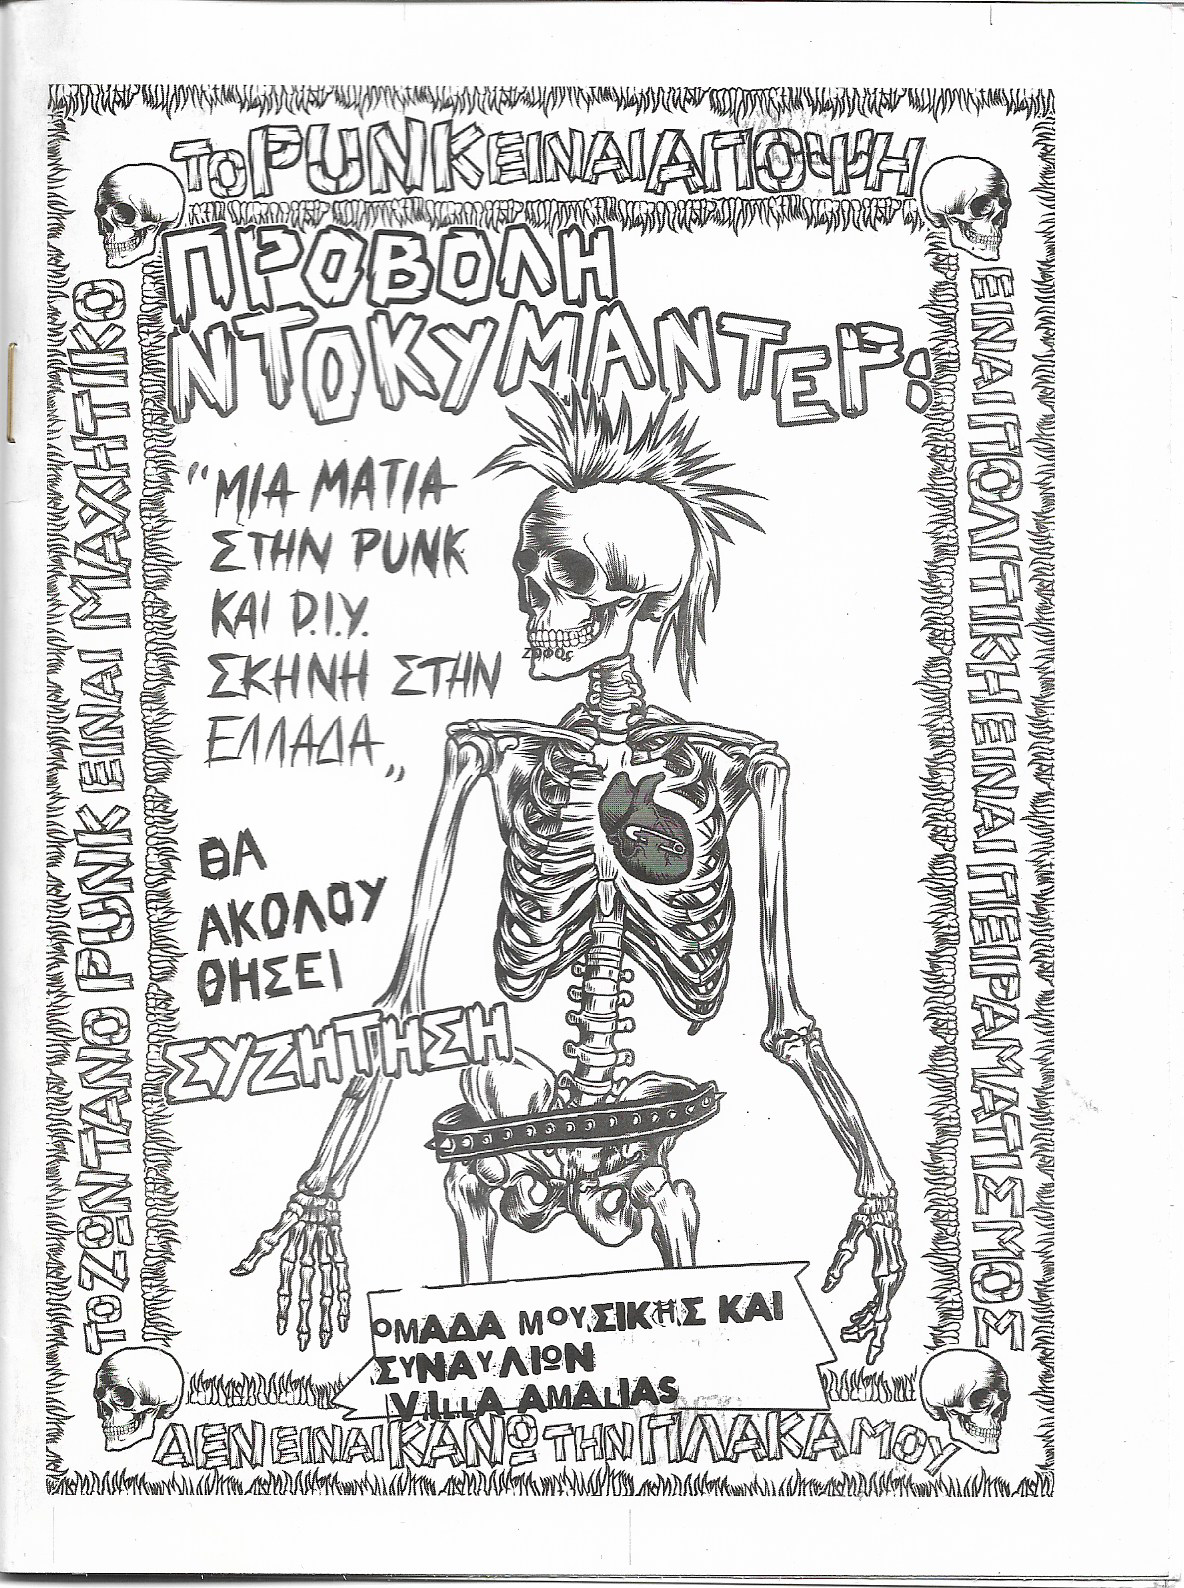 ΤΟ PUNK ΕΙΝΑΙ ΑΠΟΨΗ
ΠΡΟΒΟΛΗ
ΝΤΟΚΥΜΑΝΤΕΡ:
"ΜΙΑ ΜΑΤΙΑ
ΣΤΗΝ PUNK
ΚΑΙ D.I.Y.
ΣΚΗΝΗ ΣΤΗΝ
ΕΛΛΑΔΑ„
ΖΟΦΟς
ΘΑ
ΑΚΟΛΟΥ
ΘΗΣΕΙ
ΣΥΖΗΤΗΣΗ
ΟΜΑΔΑ ΜΟΥΣΙΚΗΣ ΚΑΙ
ΣΥΝΑΥΛΙΩΝ
VILLA AMALIAS
ΤΟ ΖΩΝΤΑΝΟ PUNK ΕΙΝΑΙ ΜΑΧΗΤΙΚΟ
ΕΙΝΑΙ ΠΟΛΙΤΙΚΗ ΕΙΝΑΙ ΠΕΙΡΑΜΑΤΙΣΜΟΣ
ΔΕΝ ΕΙΝΑΙ ΚΑΝΩ ΤΗΝ ΠΛΑΚΑ ΜΟΥ